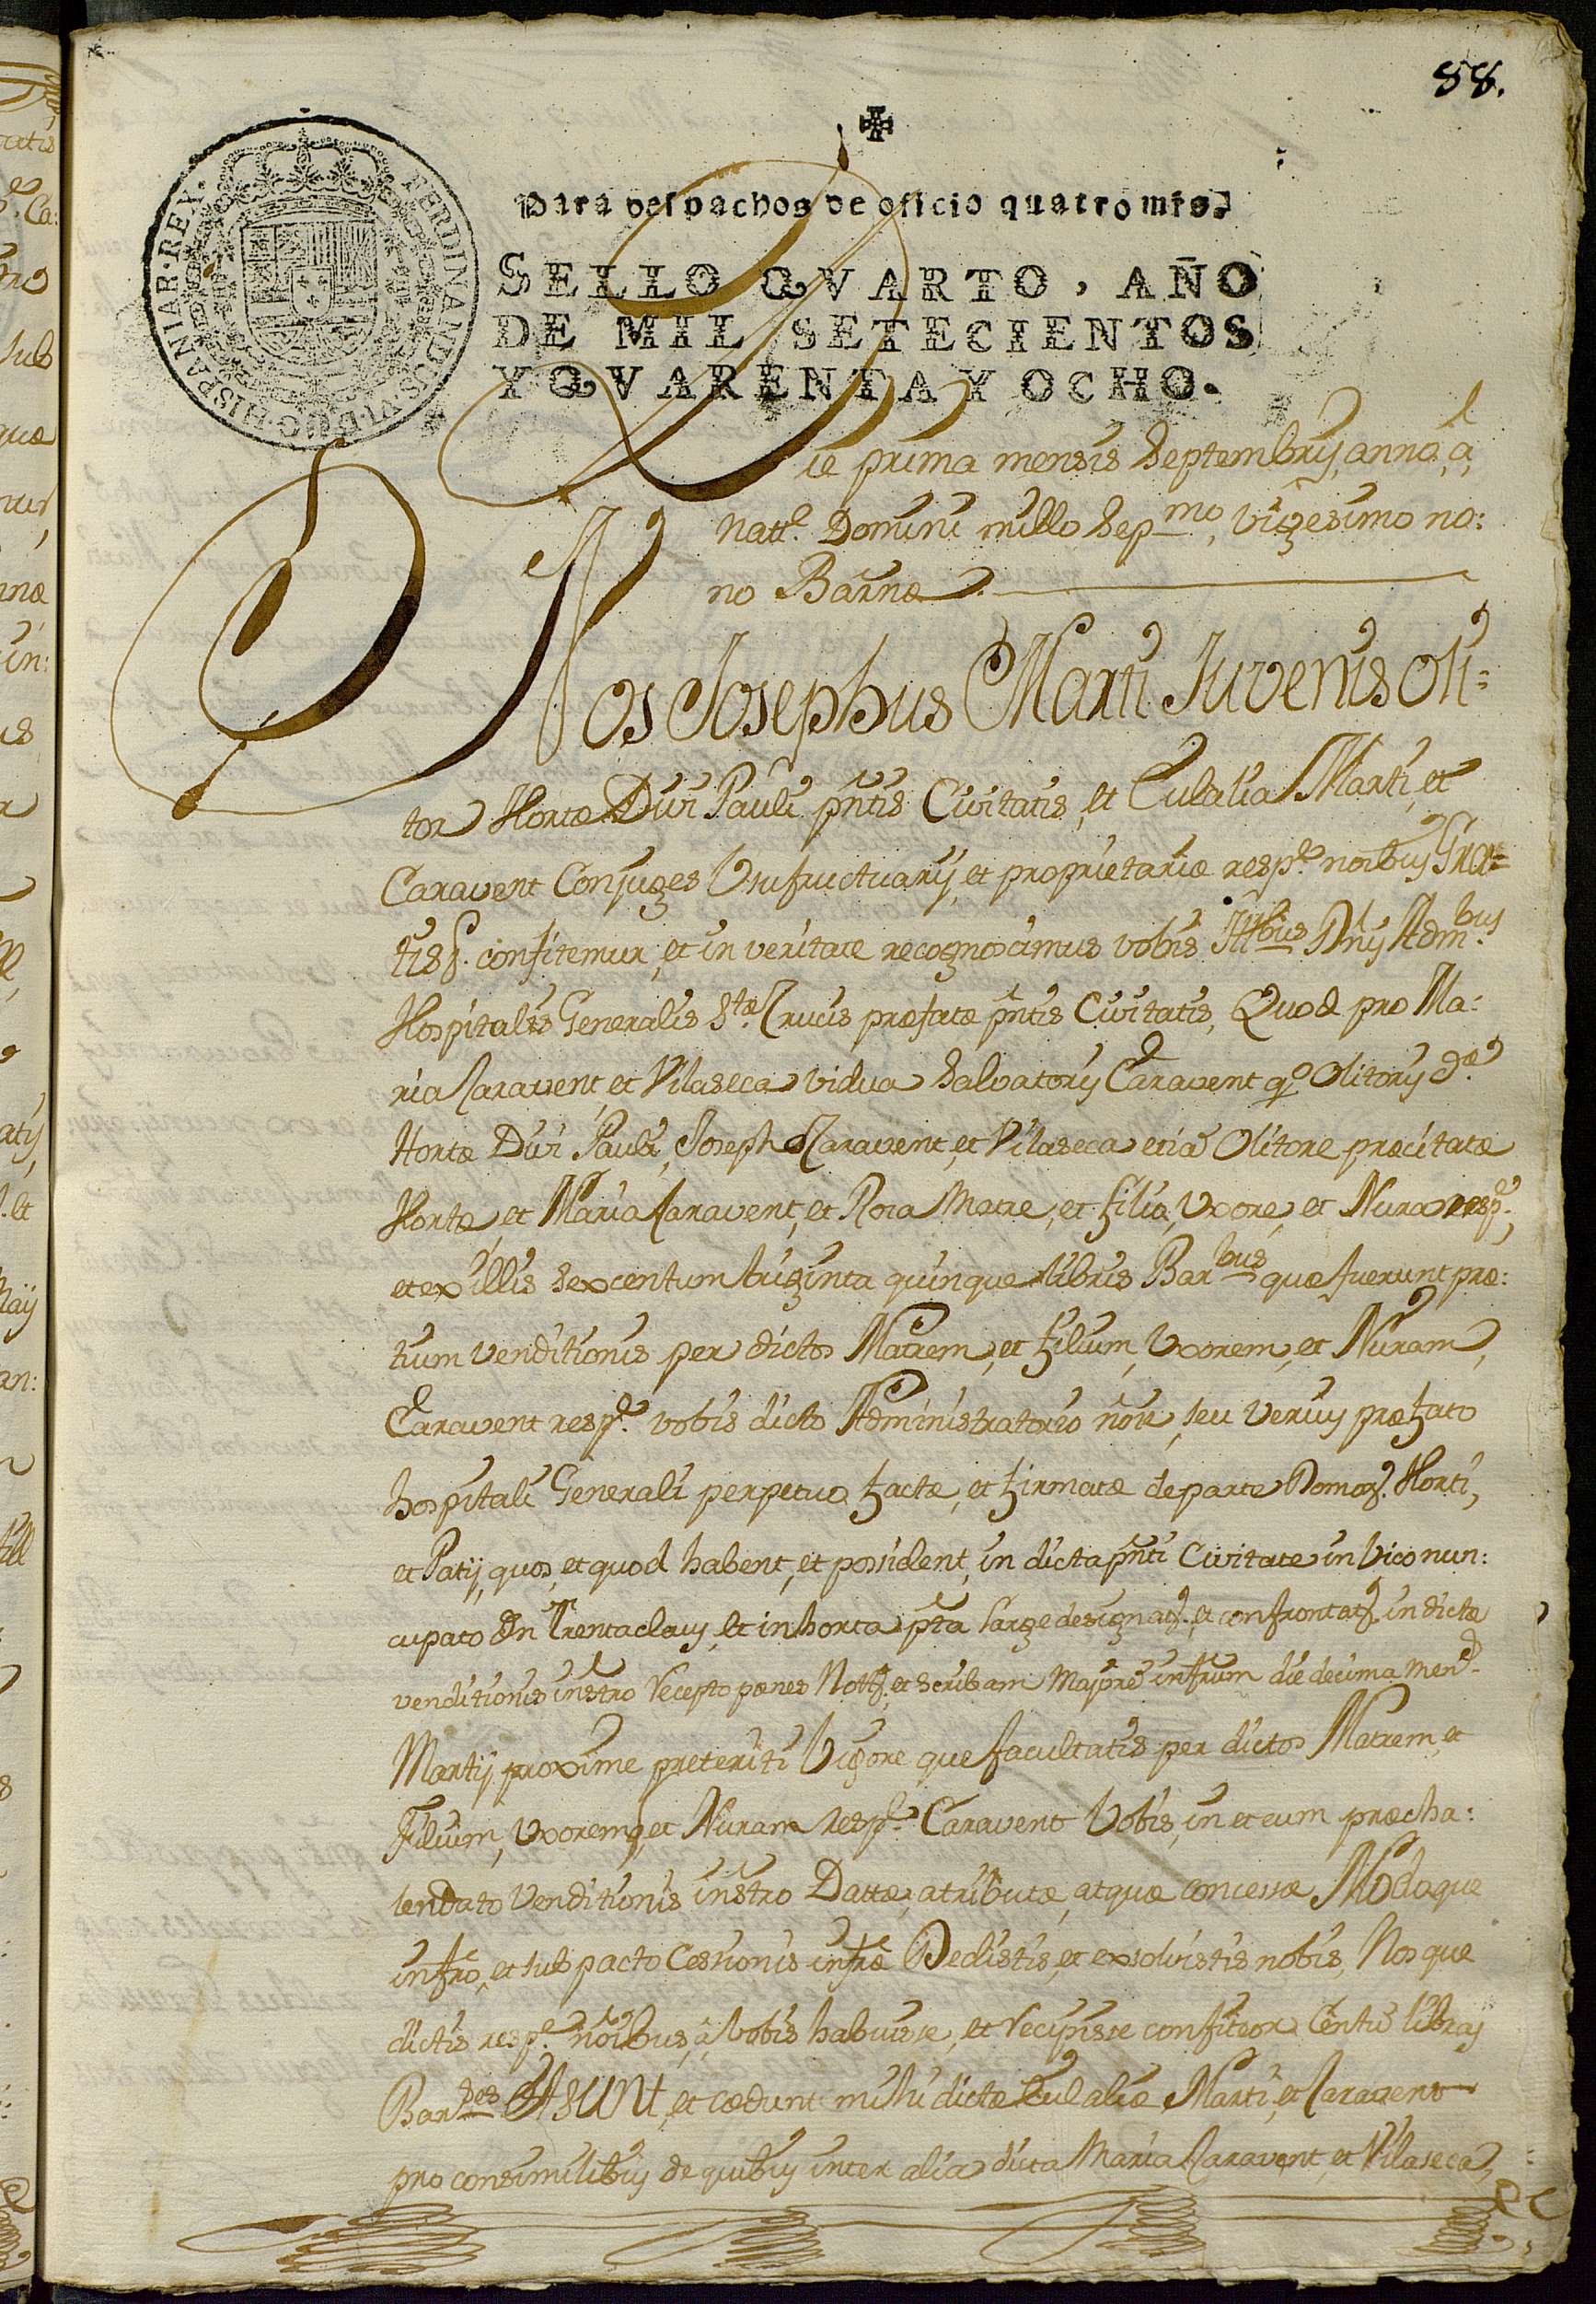 88.
Para despachos de oficio quatro mrs.
SELLO QVARTO, AÑO
DE MIL SETECIENTOS
Y QVARENTA Y OCHO.
FERDINANDUS·VI·D·G·HISPANIAR·REX·
Die prima mensis Septembrij, anno, â,
Natt.e Domini millo Sep.mo, Vigesimo no:
no Barnæ.
Nos Josephus Marti Juvenis oli=
tor Hortæ Divi Pauli pñtis Civitatis, et Eulalia Marti, et
Caravent Conjuges Usufructuarij, et proprietariæ resp.e noibus Gra=
tis &. confitemur, et in veritate recognoscimus vobis Ill.bus Dnis Adm.bus
Hospitalis Generalis S.tæ Crucis præfatæ pñtis Civitatis, Quod pro Ma:
ria Caravent et Vilaseca vidua Salvatoris Caravent q.o Olitoris d.æ
Hortæ Divi Pauli, Joseph Caravent, et Vilaseca etiã Olitore præcitatæ
Hortæ, et Maria Caravent, et Rora Matre, et filio, Uxore, et Nura resp.e,
et ex illis sexcentum triginta quinque libris Bar.bus quæ fuerunt præ:
tium venditionis per dictos Matrem, et filium, Uxorem, et Nuram,
Caravent resp.e vobis dicto Administratorio nõie, seu verius præfato
hospitali Generali perpetuo factæ, et firmatæ de parte Domor. Horti,
et Patij, quos, et quod habent, et possident, in dicta pñti Civitate in Vico nun:
cupato den Trentaclaus, et in horta pta large designat. et confrontat. in dictæ
venditionis instro recepto pænes Nott. et Scribam Majorẽ infrum die decima men.
Martij proxime preteriti Vigore que facultatis per dictos Matrem, et
Filium, Uxorem, et Nuram resp.e Caravent Vobis, in et cum præcha:
lendato Venditionis instro Dattæ, atributæ, atquæ concessæ Modoque
infro, et sub pacto Cessionis infræ Dedistis, et exsolvistis nobis, Nosque
dictis resp.e nõibus, â, vobis habuisse, et recipisse confiteor Centũ libras
Bar.ses ASUNt, et cedunt mihi dictæ Eulaliæ Marti, et Caravent
pro consimilibus de quibus inter alia dicta Maria Caravent, et Vilaseca,